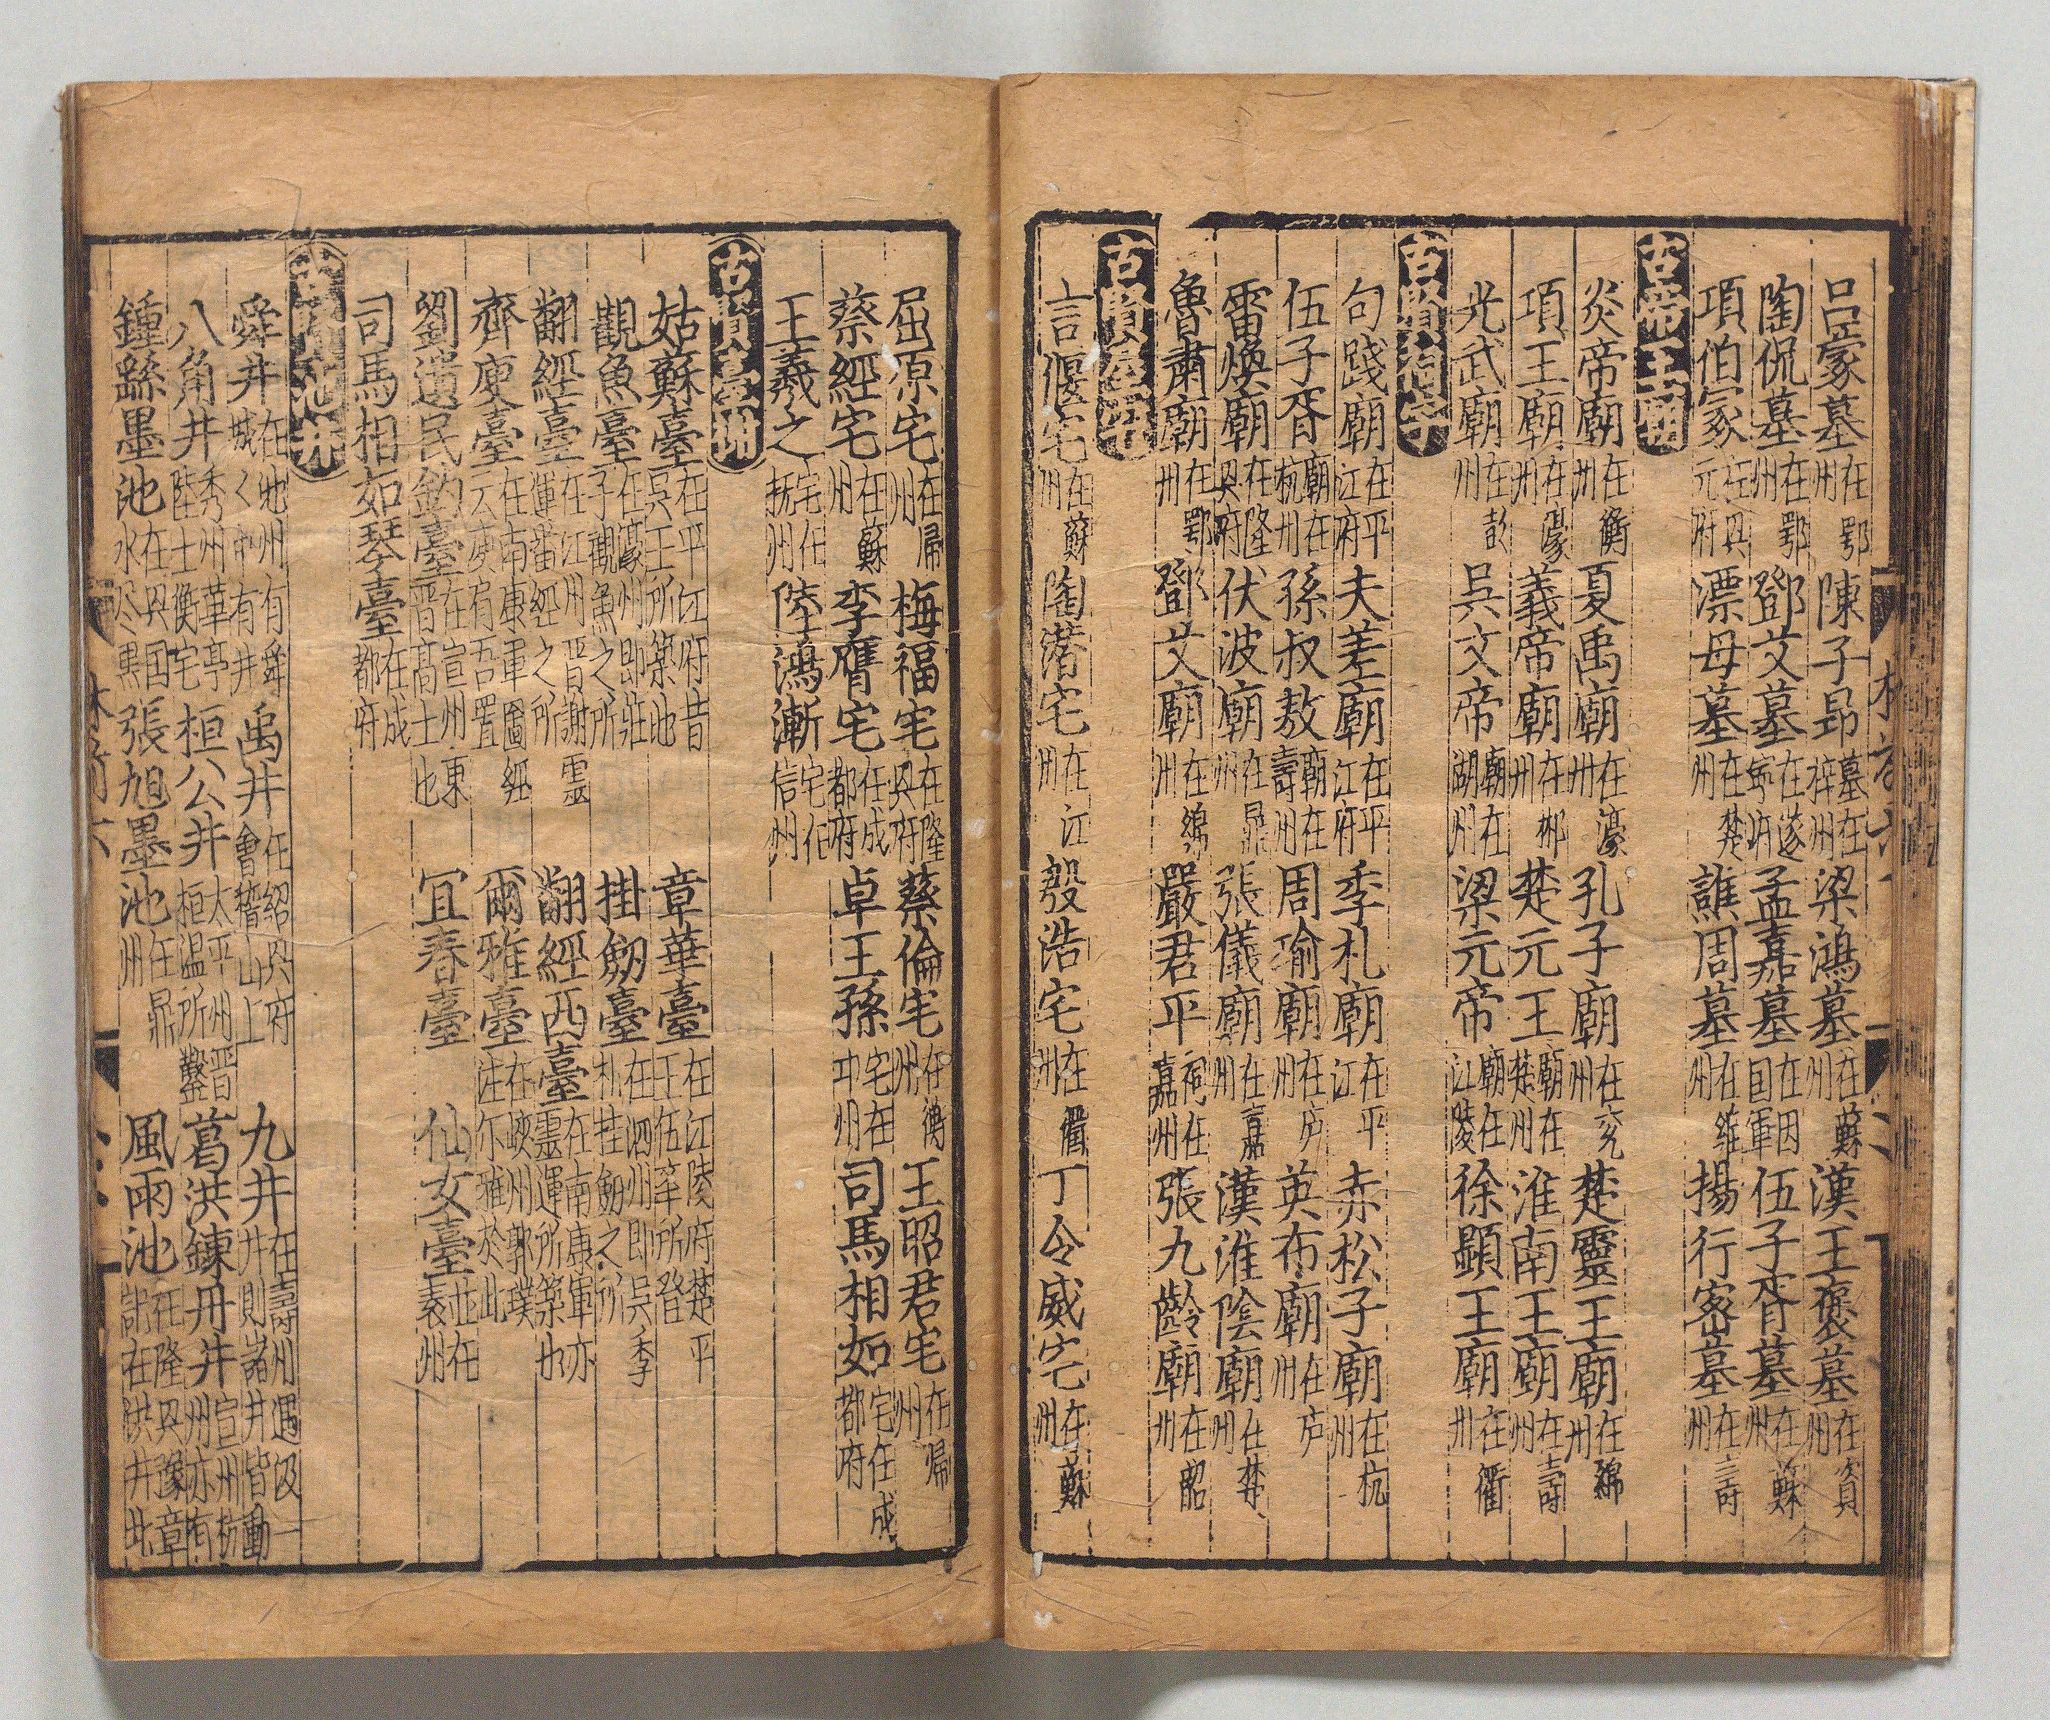 呂蒙墓在鄂州 陳子昂墓在梓州 梁鴻墓在蘇州 漢王褒墓在資州
陶侃墓在鄂州 鄧艾墓在遂寧府 孟嘉墓在因国軍 伍子胥墓在蘇州
項伯冢在興元府 漂母墓在楚州 譙周墓在維州 揚行密墓在壽州
古帝王廟
炎帝廟在衡州 夏禹廟在濠州 孔子廟在兖州 楚靈王廟在綿州
項王廟在濠州 義帝廟在郴州 楚元王廟在楚州 淮南王廟在壽州
光武廟在彭州 吳文帝廟在湖州 梁元帝廟在江陵 徐顯王廟在衢州
古賢
句踐廟在平江府 夫差廟在平江府 季札廟在平江 赤松子廟在杭州
伍子胥廟在杭州 孫叔敖廟在壽州 周瑜廟在庐州 英布廟在庐州
雷煥廟在隆興府 伏波廟在鼎州 張儀廟在嘉州 漢淮陰廟在楚州
魯肅廟在鄂州 鄧艾廟在綿州 嚴君平祠在嘉州 張九齡廟在韶州
古賢宅
言偃宅在蘇州 陶潜宅在江州 殷浩宅在衢州 丁令威宅在蘇州
屈原宅在歸州 梅福宅在隆興府 蔡倫宅在衡州 王昭君宅在歸州
蔡經宅在蘇州 李膺宅在成都府 卓王孫宅在邛州 司馬相如宅在成都府
王羲之宅在撫州 陸鴻漸宅在信州
古賢臺
姑蘇臺在平江府昔吳王所築也 章華臺在江陵府楚平王伍筆所登
觀魚臺在濠州即莊子觀魚之所 掛劒臺在泗州即吳季札挂劒之所
翻經臺在江州晋謝靈運翻經之所 翻經西臺在南康軍亦靈運所築也
齊庾臺在南康軍圖經云庾肩吾置 爾雅臺在峽州郭璞注尔雅於此
劉遺民釣臺在宣州東晋高士也 宜春臺 仙女臺並在袁州
司馬相如琴臺在成都府
池井
舜井在池州有舜城く中有井 禹井在紹興府會稽山上 九井在壽州遇汲一井則諸井皆動
八角井秀州華亭陸士衡宅 桓公井太平州晋桓温所鑿 葛洪鍊丹井宣州杭州亦有
鍾繇墨池在興国水尽黑 張旭墨池在鼎州 風雨池在隆興豫章記在洪井北